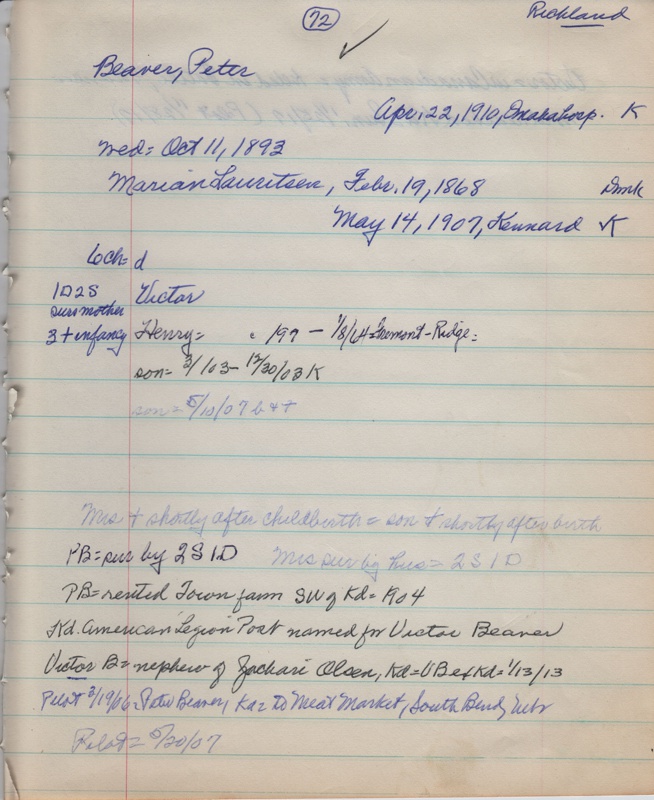 72
Richland
Beaver, Peter
Apr. 22, 1910, Omaha Corp. K
wed = Oct 11, 1893
Marian Lauritsen, Febr. 19, 1868 Dmk
May 14, 1907, Kennard K
6 ch = d
1 D 2 S Victor
surv mother
3 + infancy Henry = 197 – 1/8/64 = Fremont - Ridge =
son = 3/ /03 – 12/30/03 K
son = 5/10/07 b & +
Mrs + shortly after childbirth = son + shortly after birth
PB = sur by 2 S 1 D Mrs sur by hus = 2 S 1 D
PB = rented Town farm SW of Kd = 1904
Kd. American Legion Post named for Victor Beaver
Victor B = nephew of Zachari Olsen, Kd = VB ex Kd = 1/13/13
Pilot 3/19/06 = Peter Beaver, Ka = to Meat Market, South Bend, Nebr
Pilot = 5/20/07